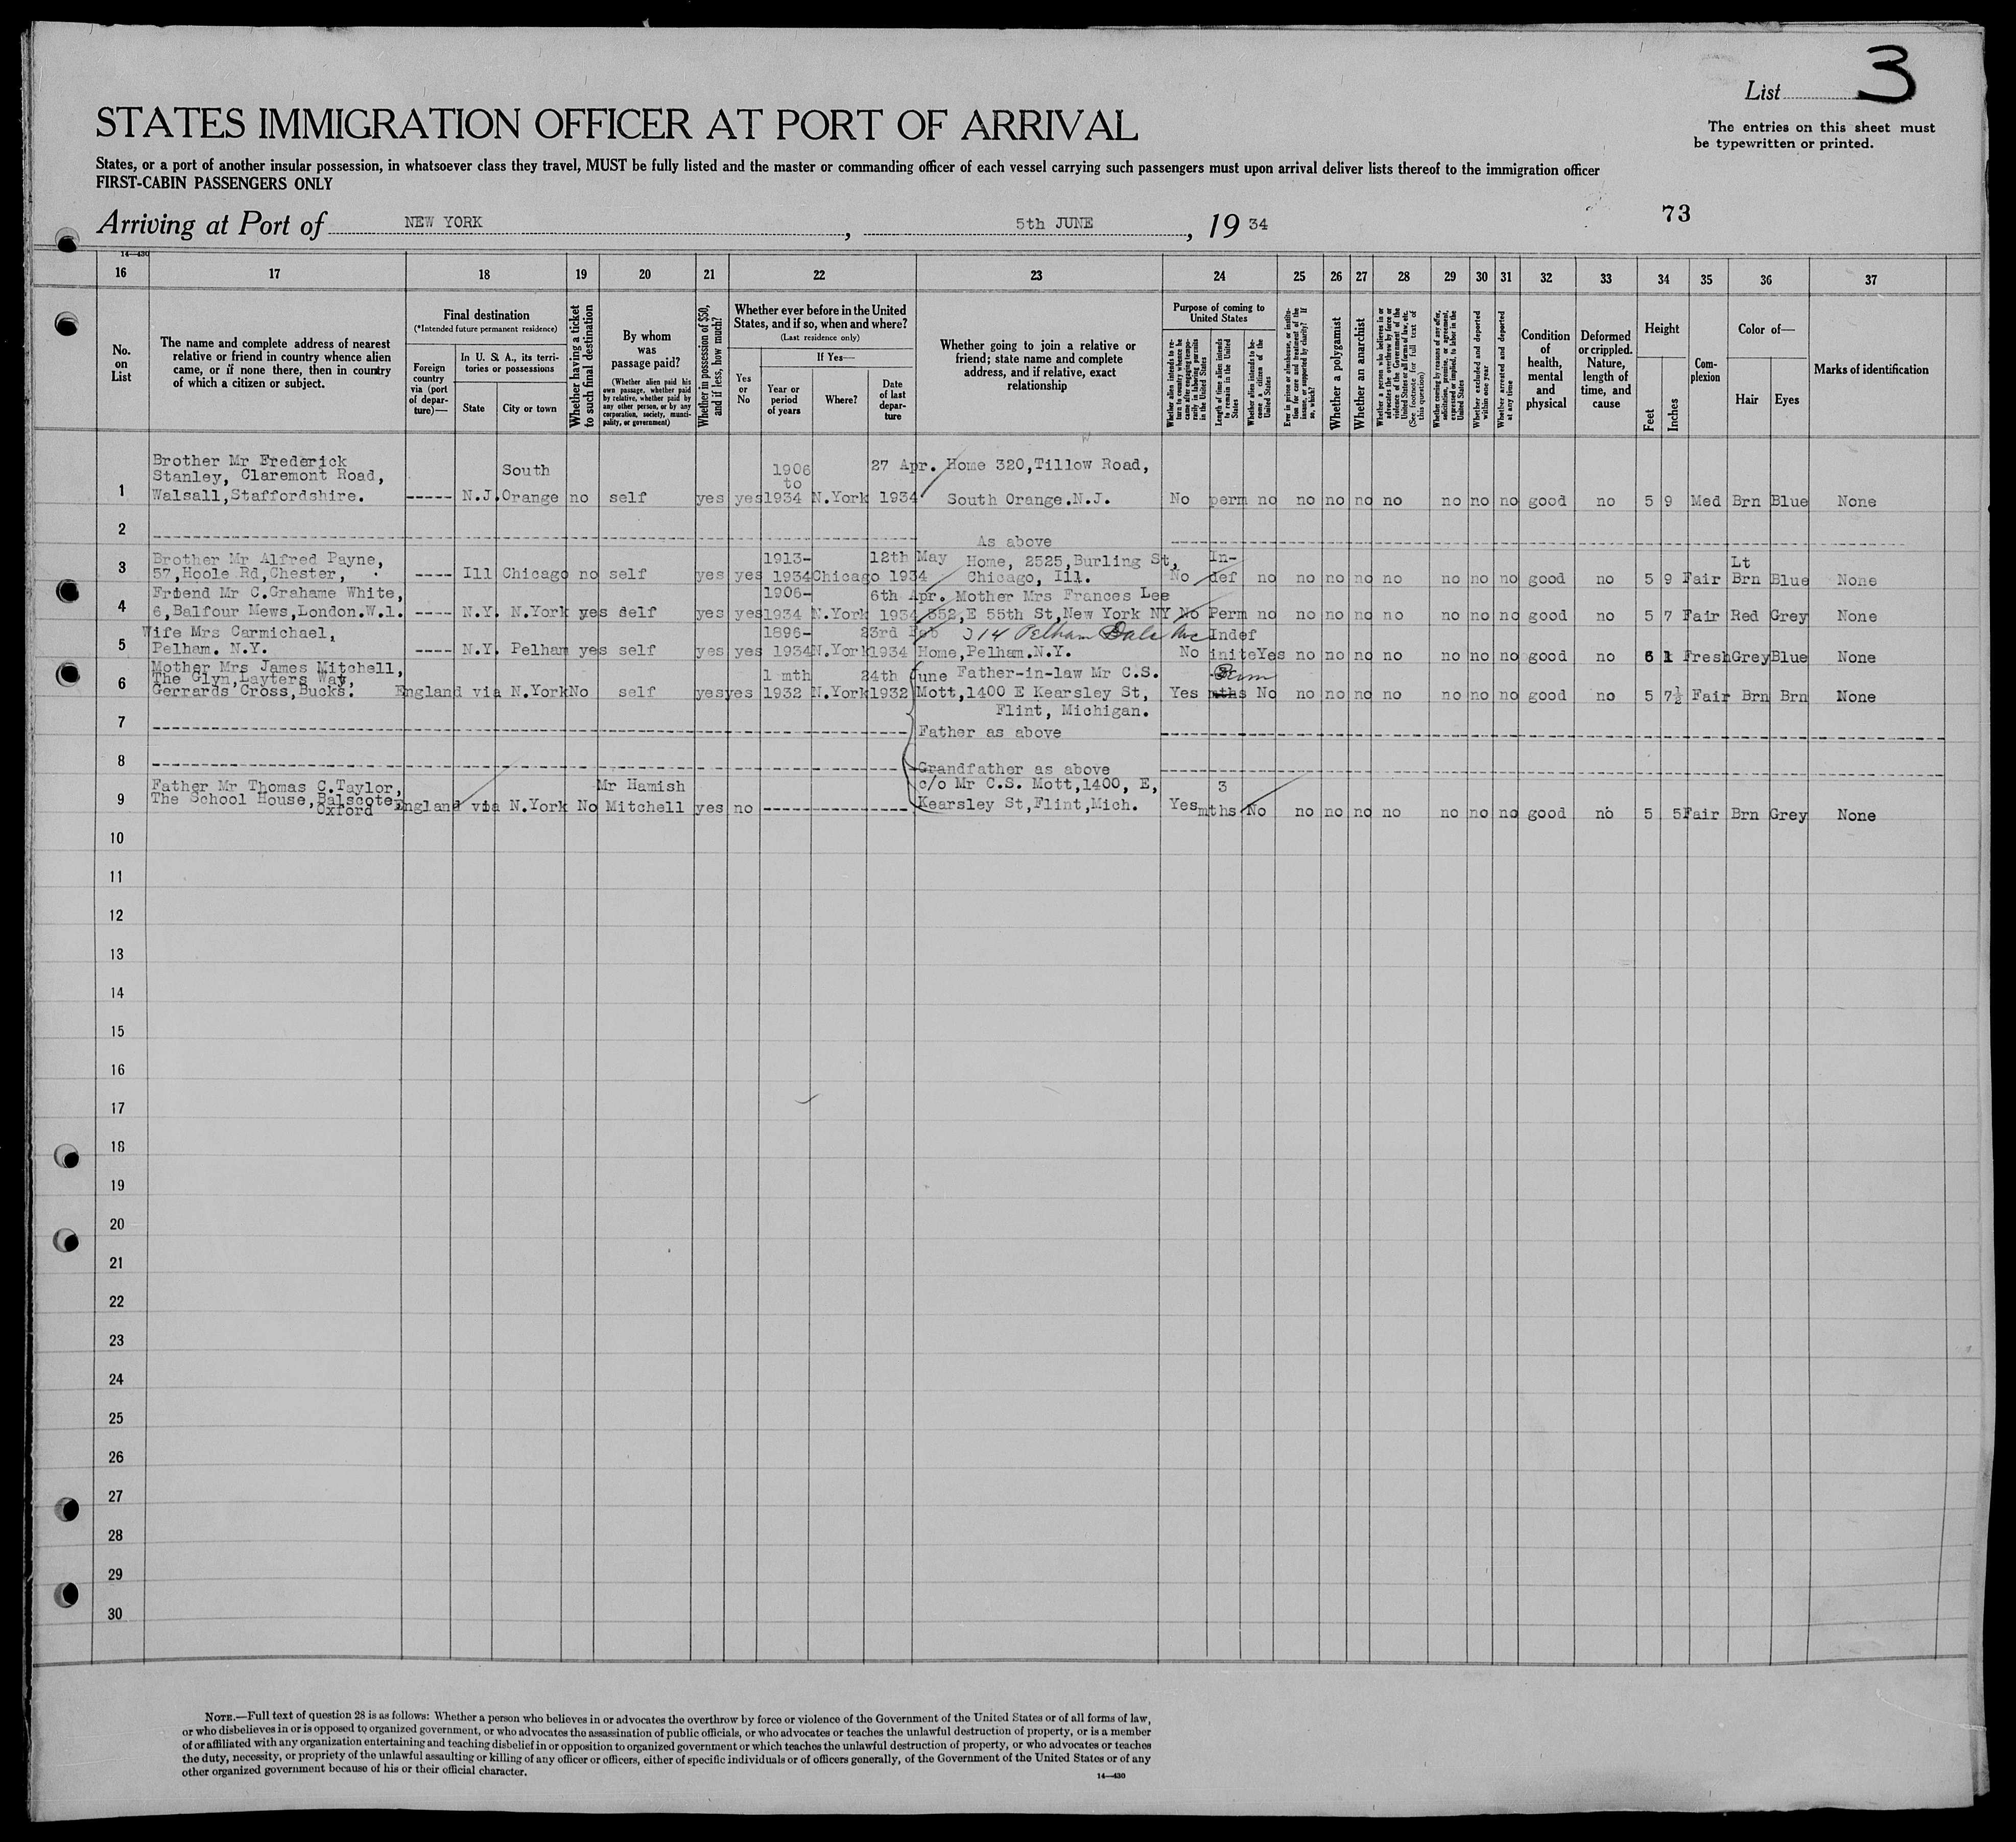 List 3
STATES IMMIGRATION OFFICER AT PORT OF ARRIVAL
The entries on this sheet must
be typewritten or printed.
States, or a port of another insular possession, in whatsoever class they travel, MUST be fully listed and the master or commanding officer of each vessel carrying such passengers must upon arrival deliver lists thereof to the immigration officer
FIRST-CABIN PASSENGERS ONLY
73
Arriving at Port of NEW YORK, 5th JUNE, 19 34
14—430
16 17 18 19 20 21 22 23 24 25 26 27 28 29 30 31 32 33 34 35 36 37
No. on List
The name and complete address of nearest relative or friend in country whence alien came, or if none there, then in country of which a citizen or subject.
Final destination
(*Intended future permanent residence)
Foreign country via (port of departure)—
In U. S. A., its territories or possessions
State
City or town
Whether having a ticket to such final destination
By whom was passage paid?
(Whether alien paid his own passage, whether paid by relative, whether paid by any other person, or by any corporation, society, municipality, or government)
Whether in possession of $50, and if less, how much?
Whether ever before in the United States, and if so, when and where?
(Last residence only)
Yes or No
If Yes—
Year or period of years
Where?
Date of last departure
Whether going to join a relative or friend; state name and complete address, and if relative, exact relationship
Purpose of coming to United States
Whether alien intends to return to country whence he came after engaging temporarily in laboring pursuits in the United States
Length of time alien intends to remain in the United States
Whether alien intends to become a citizen of the United States
Ever in prison or almshouse, or institution for care and treatment of the insane, or supported by charity? If so, which?
Whether a polygamist
Whether an anarchist
Whether a person who believes in or advocates the overthrow by force or violence of the Government of the United States or all forms of law, etc. (See footnote for full text of this question)
Whether coming by reasons of any offer, solicitation, promise, or agreement, expressed or implied, to labor in the United States
Whether excluded and deported within one year
Whether arrested and deported at any time
Condition of health, mental and physical
Deformed or crippled. Nature, length of time, and cause
Height
Feet
Inches
Complexion
Color of—
Hair
Eyes
Marks of identification
Brother Mr Frederick South 1906 27 Apr. Home 320,Tillow Road,
Stanley, Claremont Road, to
1 Walsall,Staffordshire. ----- N.J. Orange no self yes yes 1934 N.York 1934 South Orange.N.J. No perm no no no no no no no no good no 5 9 Med Brn Blue None
2 As above
Brother Mr Alfred Payne, 1913- 12th May Home, 2525,Burling St, In- Lt
3 57,Hoole Rd,Chester, ---- Ill Chicago no self yes yes 1934 Chicago 1934 Chicago, Ill. No def no no no no no no no no good no 5 9 Fair Brn Blue None
Friend Mr C.Grahame White, 1906- 6th Apr. Mother Mrs Frances Lee
4 6,Balfour Mews,London.W.1. ---- N.Y. N.York yes self yes yes 1934 N.York 1934 352,E 55th St,New York NY No Perm no no no no no no no no good no 5 7 Fair Red Grey None
Wife Mrs Carmichael, 1896- 23rd Feb 314 Pelham Dale Ave Indef
5 Pelham. N.Y. ---- N.Y. Pelham yes self yes yes 1934 N.York 1934 Home,Pelham.N.Y. No inite Yes no no no no no no no good no 6 1 Fresh Grey Blue None
Mother Mrs James Mitchell, 1 mth 24th June Father-in-law Mr C.S.
The Glyn,Layters Way,
6 Gerrards Cross,Bucks. England via N.York No self yes yes 1932 N.York 1932 Mott,1400 E Kearsley St, Yes mths No no no no no no no no good no 5 7½ Fair Brn Brn None
Flint, Michigan.
7 Father as above
8 Grandfather as above
Father Mr Thomas C.Taylor, Mr Hamish c/o Mr C.S. Mott,1400, E, 3
9 The School House,Balscote, England via N.York No Mitchell yes no Kearsley St,Flint,Mich. Yes mths No no no no no no no no good no 5 5 Fair Brn Grey None
Oxford
10
11
12
13
14
15
16
17
18
19
20
21
22
23
24
25
26
27
28
29
30
NOTE.—Full text of question 28 is as follows: Whether a person who believes in or advocates the overthrow by force or violence of the Government of the United States or of all forms of law,
or who disbelieves in or is opposed to organized government, or who advocates the assassination of public officials, or who advocates or teaches the unlawful destruction of property, or is a member
of or affiliated with any organization entertaining and teaching disbelief in or opposition to organized government or which teaches the unlawful destruction of property, or who advocates or teaches
the duty, necessity, or propriety of the unlawful assaulting or killing of any officer or officers, either of specific individuals or of officers generally, of the Government of the United States or of any
other organized government because of his or their official character.
14—430